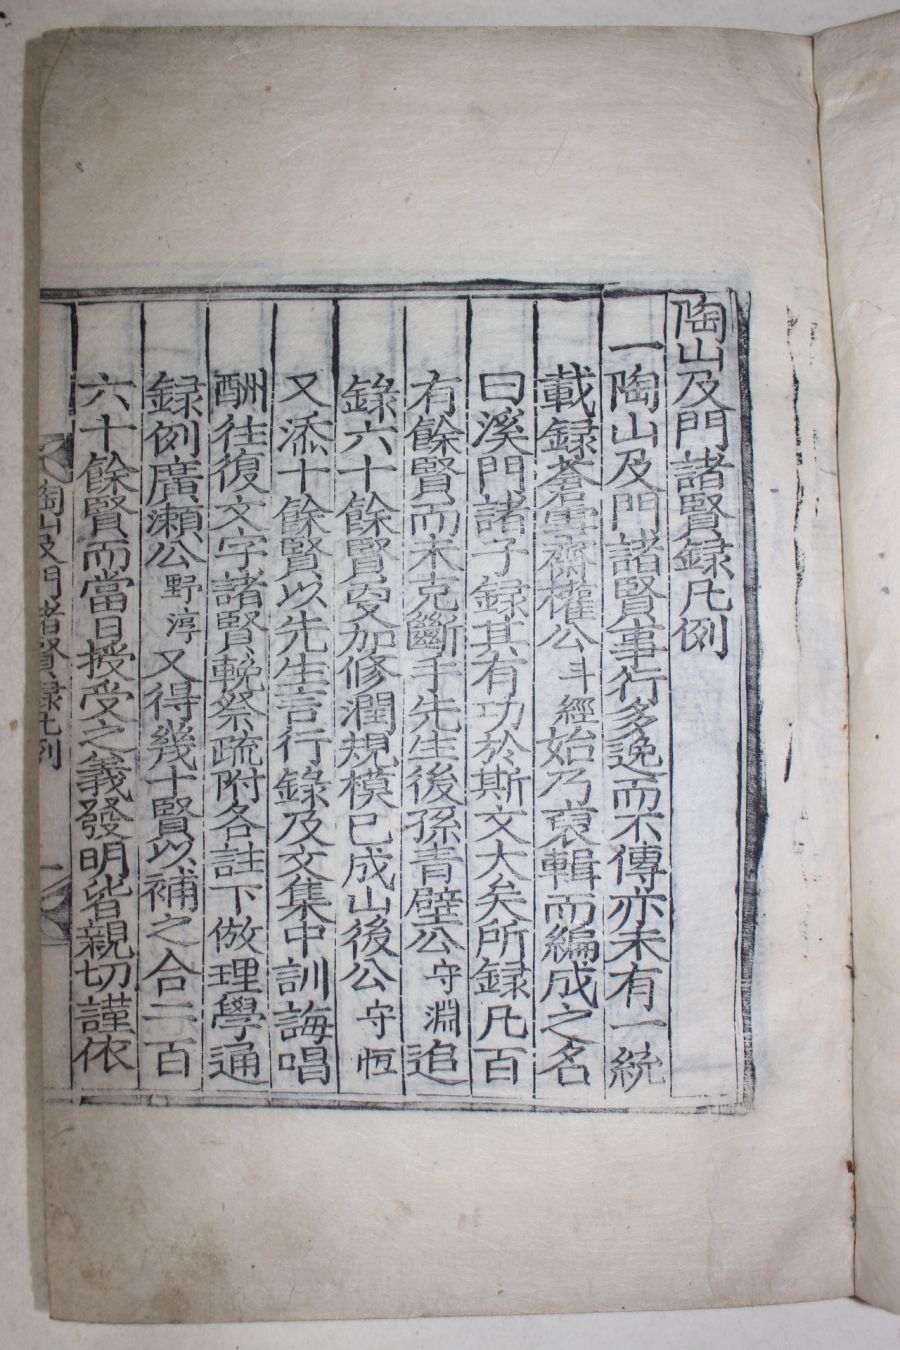 陶山及門諸賢録凡例
一陶山及門諸賢事行多逸而不傳亦未有一統
載録蒼雪齋權公斗經始乃裒輯而編成之名
曰溪門諸子録其有功於斯文大矣所録凡百
有餘賢而未克斷手先生後孫青壁公守淵追
錄六十餘賢更加修潤規模已成山後公守恒
又添十餘賢以先生言行錄及文集中訓誨唱
酬往復文字諸賢輓祭疏附各註下倣理學通
録例廣瀬公野淳又得幾十賢以補之合二百
六十餘賢而當日授受之義發明皆親切謹依
陶山及門諸賢録凡例 一